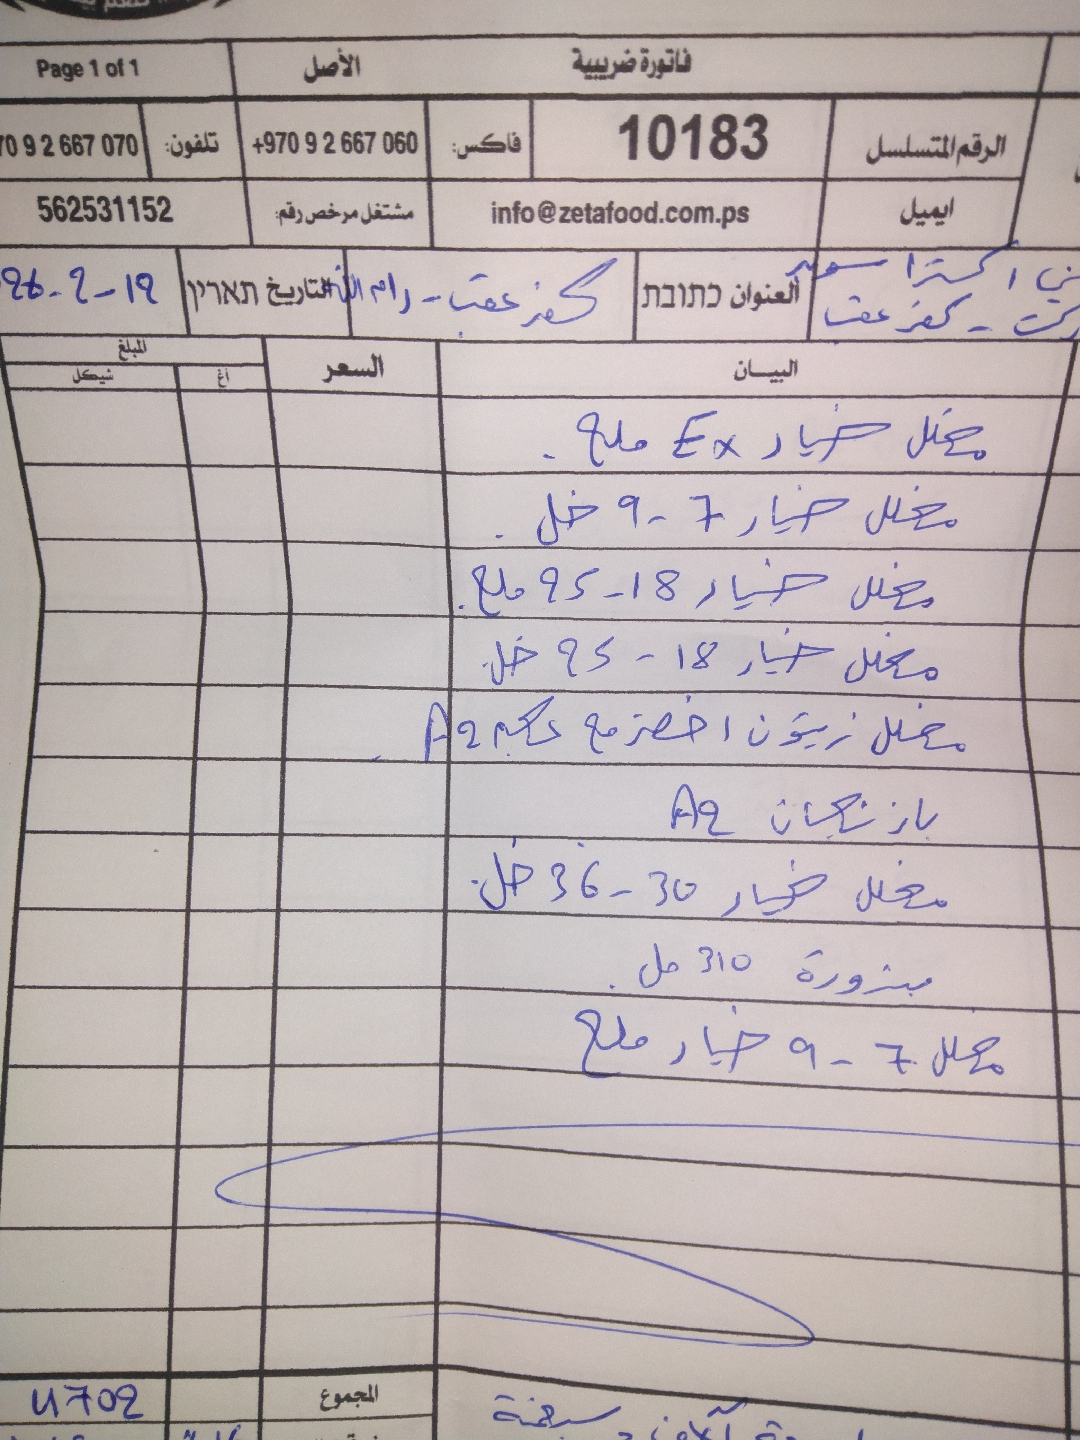 فاتورة ضريبية الأصل Page 1 of 1
الرقم المتسلسل 10183 فاكس: +970 9 2 667 060 تلفون: 70 9 2 667 070
ايميل info@zetafood.com.ps مشتغل مرخص رقم: 562531152
اكسترا سوبر
كفر عقب العنوان כתובת كفر عقب - رام الله التاريخ תאריך 19-2-
البيـــان السعر المبلغ
أغ شيكل
مخلل خيار Ex ملح
مخلل خيار 7-9 خل
مخلل خيار 18-25 ملح
مخلل خيار 18-25 خل
مخلل زيتون اخضر مع A9
باذنجان A9
مخلل خيار 30-36 خل
بندورة 310 مل
مخلل 7-9 خيار ملح
المجموع 4702
آلاف و سبعمئة